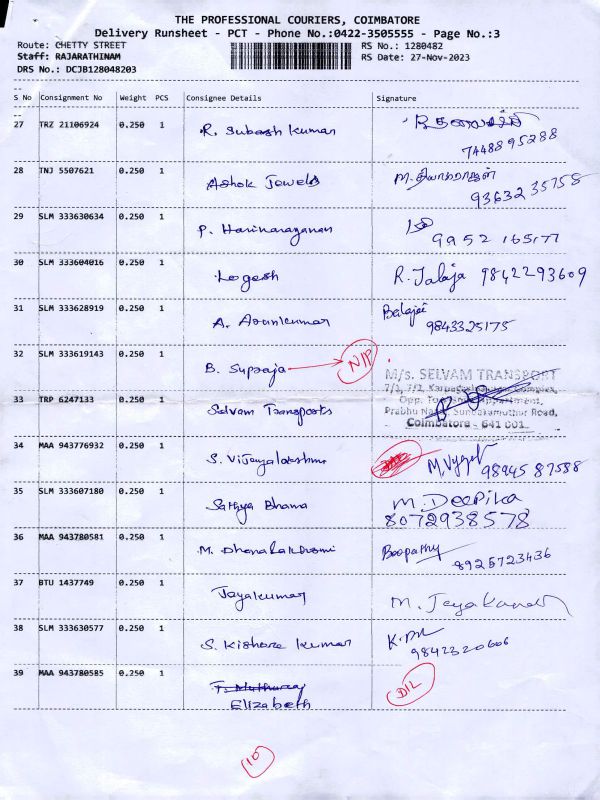 THE PROFESSIONAL COURIERS, COIMBATORE
Delivery Runsheet - PCT - Phone No.:0422-3505555 - Page No.:3
Route: CHETTY STREET RS No.: 1280482
Staff: RAJARATHINAM RS Date: 27-Nov-2023
DRS No.: DCJB128048203
S No Consignment No Weight PCS Consignee Details Signature
27 TRZ 21106924 0.250 1 R. Subash Kumar
7448895288
28 TNJ 5507621 0.250 1 Ashok Jewels
9363235758
29 SLM 333630634 0.250 1 P. Harinarayanan
9952165177
30 SLM 333604016 0.250 1 Logesh R. Jalaja 9842293609
31 SLM 333628919 0.250 1 A. Arunkumar Balajee
9843325175
32 SLM 333619143 0.250 1 B. Supraja → NIP
M/s. SELVAM TRANSPORT
33 TRP 6247133 0.250 1 Selvam Transports
Prabhu Nagar, Sundakamuthur Road,
Coimbatore - 641 001.
34 MAA 943776932 0.250 1 S. Vijayalakshmi 9894587588
35 SLM 333607180 0.250 1 Sathya Bhama M. Deepika
8072938578
36 MAA 943780581 0.250 1 M. Dhanalakshmi Boopathy
8925723436
37 BTU 1437749 0.250 1 Jayakumar M. Jeyakumar
38 SLM 333630577 0.250 1 S. Kishore Kumar
9842320606
39 MAA 943780585 0.250 1 T. Muthuraj DIL
Elizabeth
10